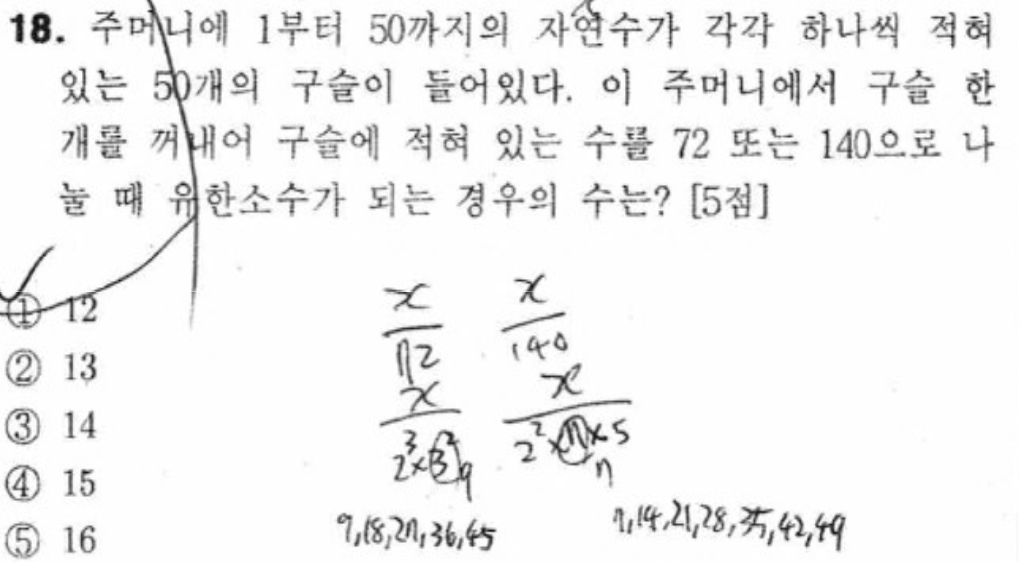 18. 주머니에 1부터 50까지의 자연수가 각각 하나씩 적혀
있는 50개의 구슬이 들어있다. 이 주머니에서 구슬 한
개를 꺼내어 구슬에 적혀 있는 수를 72 또는 140으로 나
눌 때 유한소수가 되는 경우의 수는? [5점]
① 12
② 13
③ 14
④ 15
⑤ 16
x/72 x/140
x/2³×3² 9 x/2²×7×5 7
9,18,27,36,45 7,14,21,28,35,42,49